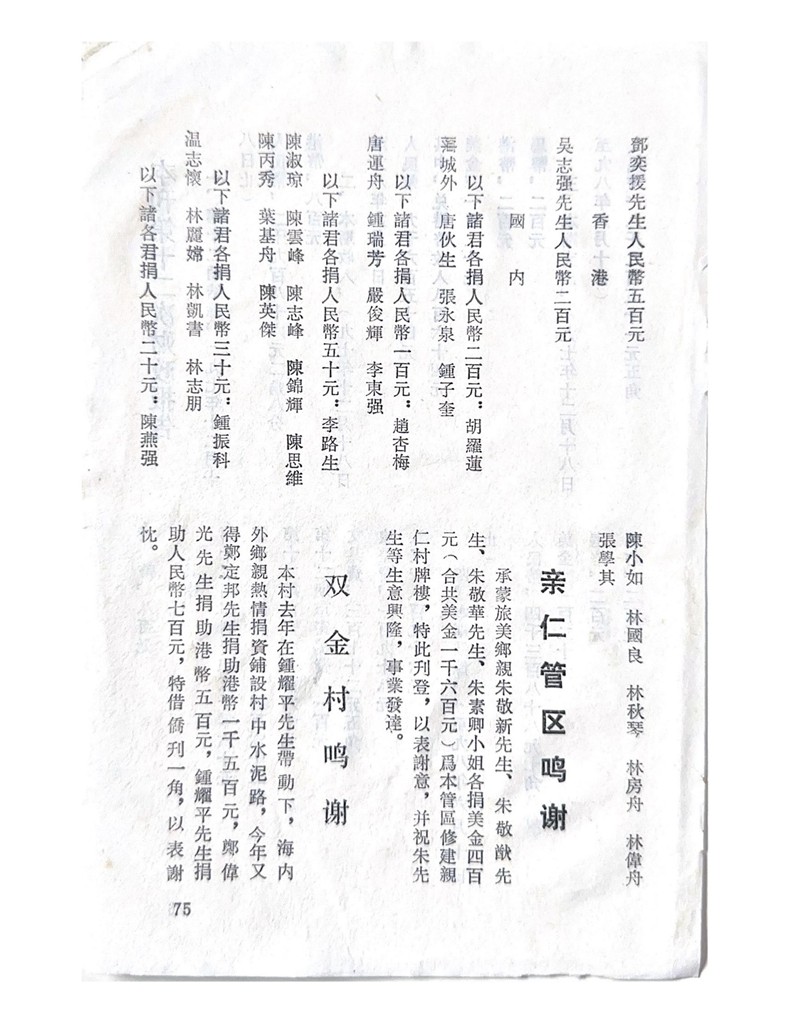 鄧奕援先生人民幣五百元
香港
吴志强先生人民幣二百元
國内
以下諸君各捐人民幣二百元：胡羅蓮
唐伙生 張永泉 鍾子奎
以下諸君各捐人民幣一百元：趙杏梅
唐運舟 鍾瑞芳 嚴俊輝 李東强
以下諸君各捐人民幣五十元：李路生
陳淑琼 陳雲峰 陳志峰 陳錦輝 陳思維
陳丙秀 葉基舟 陳英傑
以下諸君各捐人民幣三十元：鍾振科
温志懷 林麗嫦 林凱書 林志朋
以下諸各君捐人民幣二十元：陳燕强
陳小如 林國良 林秋琴 林房舟 林偉舟
張學其
亲仁管区鸣谢
承蒙旅美鄉親朱敬新先生、朱敬猷先
生、朱敬華先生、朱素卿小姐各捐美金四百
元（合共美金一千六百元）爲本管區修建親
仁村牌樓，特此刊登，以表謝意，并祝朱先
生等生意興隆，事業發達。
双金村鸣谢
本村去年在鍾耀平先生帶動下，海内
外鄉親熱情捐資鋪設村中水泥路，今年又
得鄭定邦先生捐助港幣一千五百元，鄭偉
光先生捐助港幣五百元，鍾耀平先生捐
助人民幣七百元，特借僑刊一角，以表謝
忱。
75